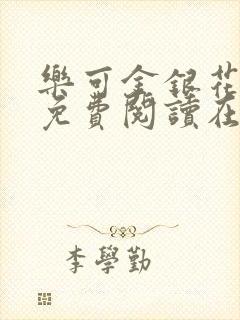 樂可金銀花
免費閱讀在
李學勤